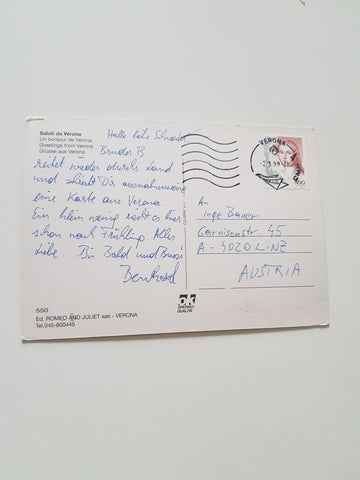 Saluti da Verona
Un bonjour de Verona
Greetings from Verona
Grüsse aus Verona
Hallo liebe Schwester
Bruder B.
reitet wieder durchs Land
und schickt Dir ausnahmsweise
eine Karte aus Verona
Ein klein wenig riecht es hier
schon nach Frühling. Alles
Liebe. Bis Bald und Bussi
VERONA
An
Inge Bauer
Garnisonstr. 45
A-4020 LINZ
AUSTRIA
550
Ed. ROMEO AND JULIET sas - VERONA
Tel.045-800445
OK